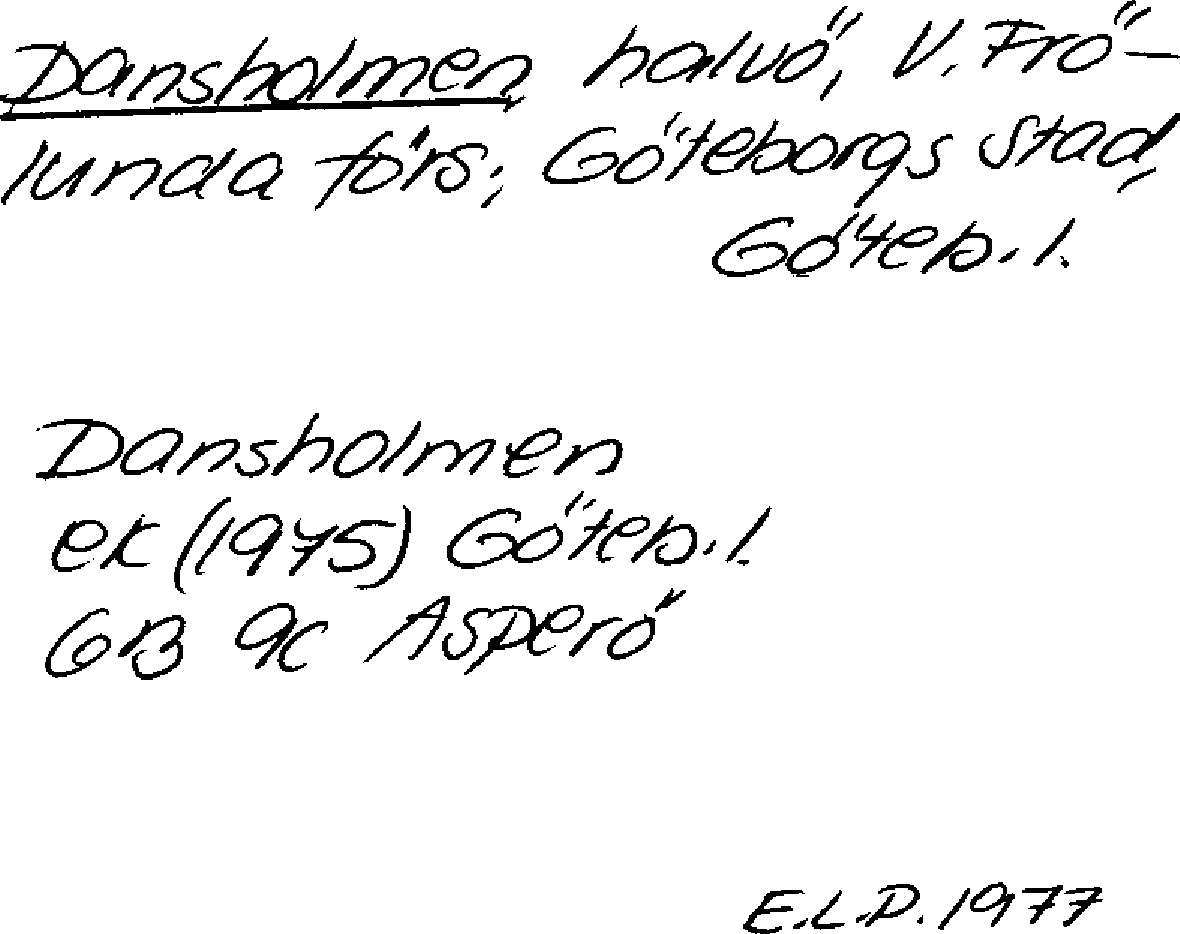 Dansholmen, halvö, V. Frö-
lunda förs., Göteborgs stad,
Göteb. l.
Dansholmen
ek (1975) Göteb. l.
GB 9c Asperö
E.L.P. 1977